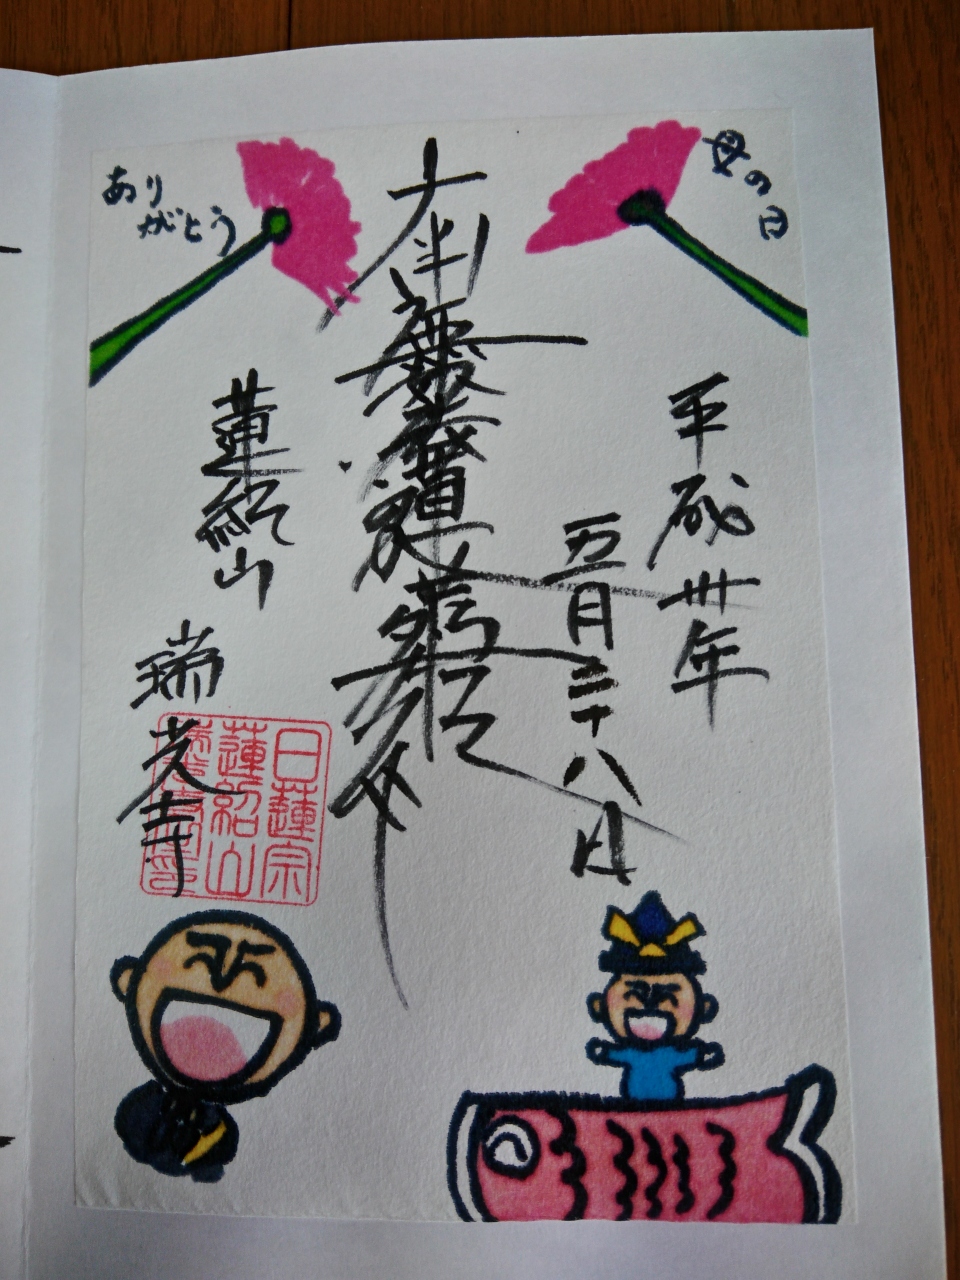 母の日
ありがとう
平成卅年
五月二十八日
南無妙法蓮華経
蓮紹山
瑞光寺
日蓮宗
蓮紹山